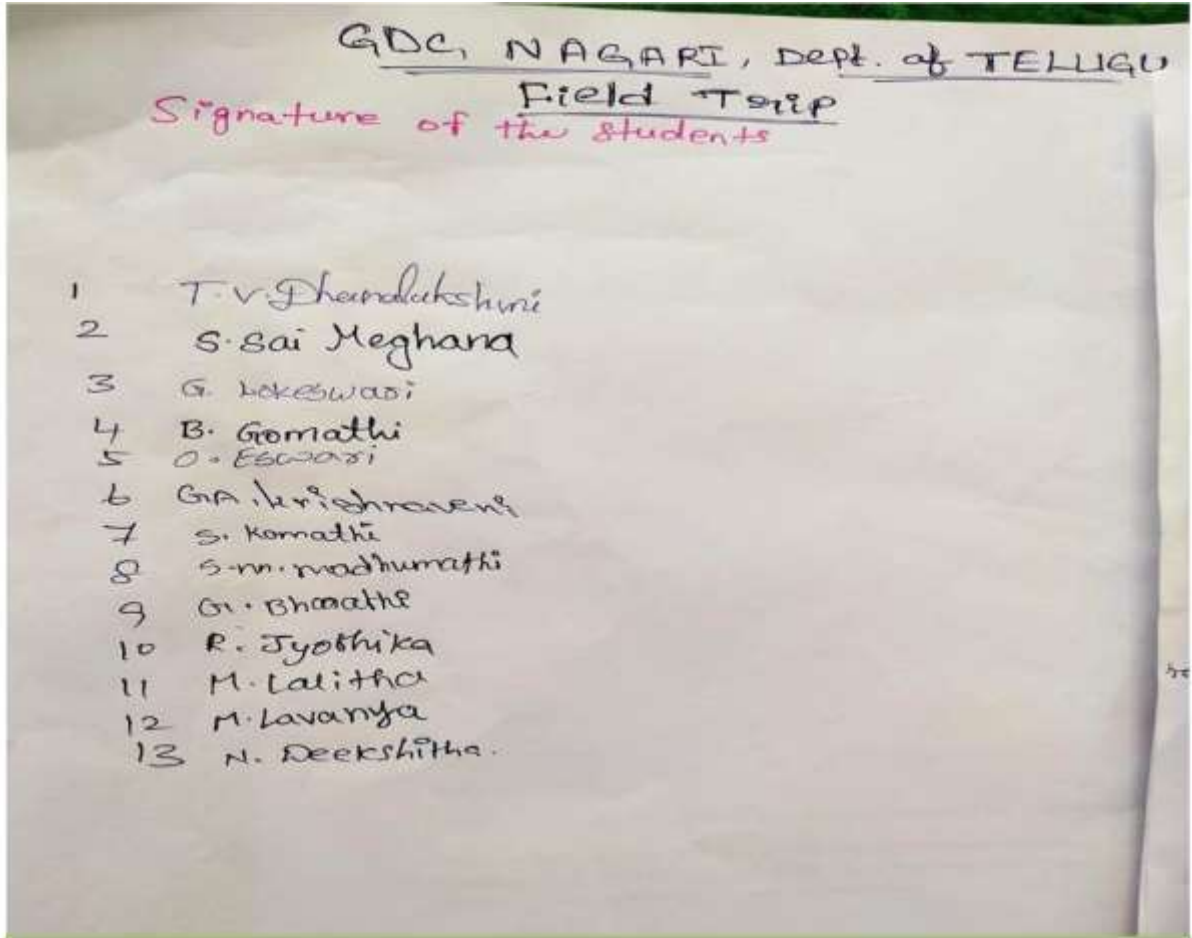 GDC, NAGARI, Dept. of TELUGU
Field Trip
Signature of the students
1 T.V. Dhanalakshmi
2 S. Sai Meghana
3 G. Lokeswari
4 B. Gomathi
5 O. Eswari
6 G.A. krishnaveni
7 S. Komathi
8 S.m. madhumathi
9 G. Bharathi
10 R. Jyothika
11 M. Lalitha
12 M. Lavanya
13 N. Deekshitha.